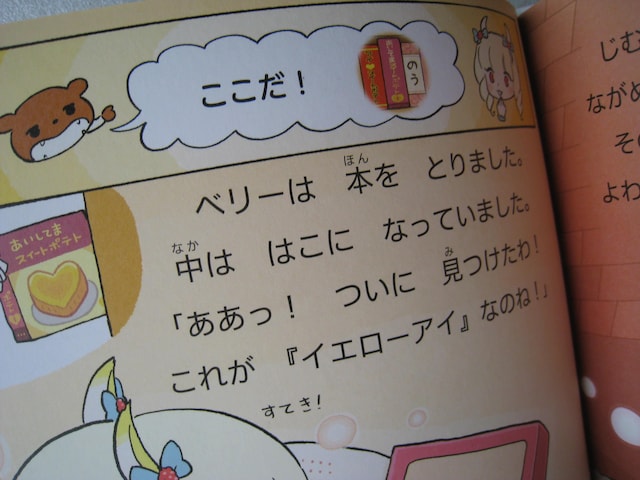 ここだ！
のう
ベリーは　本を　とりました。
ほん
中は　はこに　なっていました。
なか
「ああっ！　ついに　見つけたわ！
み
これが　『イエローアイ』なのね！」
すてき！
あいしてま
スイートポテト
じむ
ながめ
その
よわ